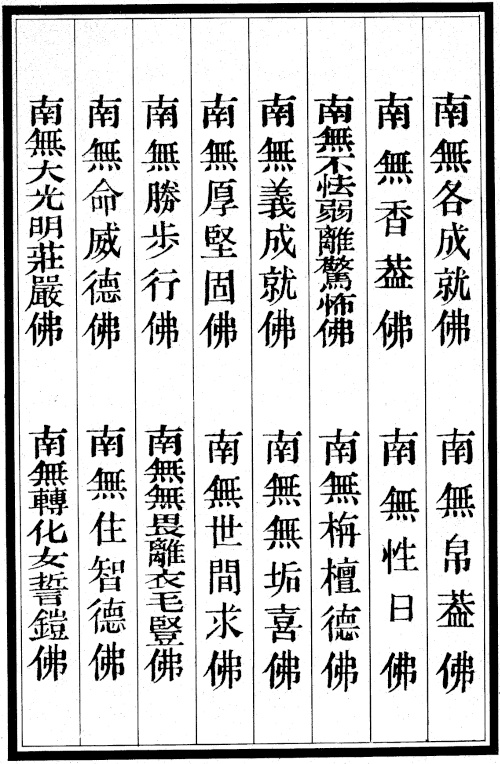 南無各成就佛
南無帛葢佛
南無香葢佛
南無性日佛
南無不怯弱離驚怖佛
南無栴檀德佛
南無義成就佛
南無無垢喜佛
南無厚堅固佛
南無世間求佛
南無勝步行佛
南無無畏離衣毛豎佛
南無命威德佛
南無住智德佛
南無大光明莊嚴佛
南無轉化女誓鎧佛